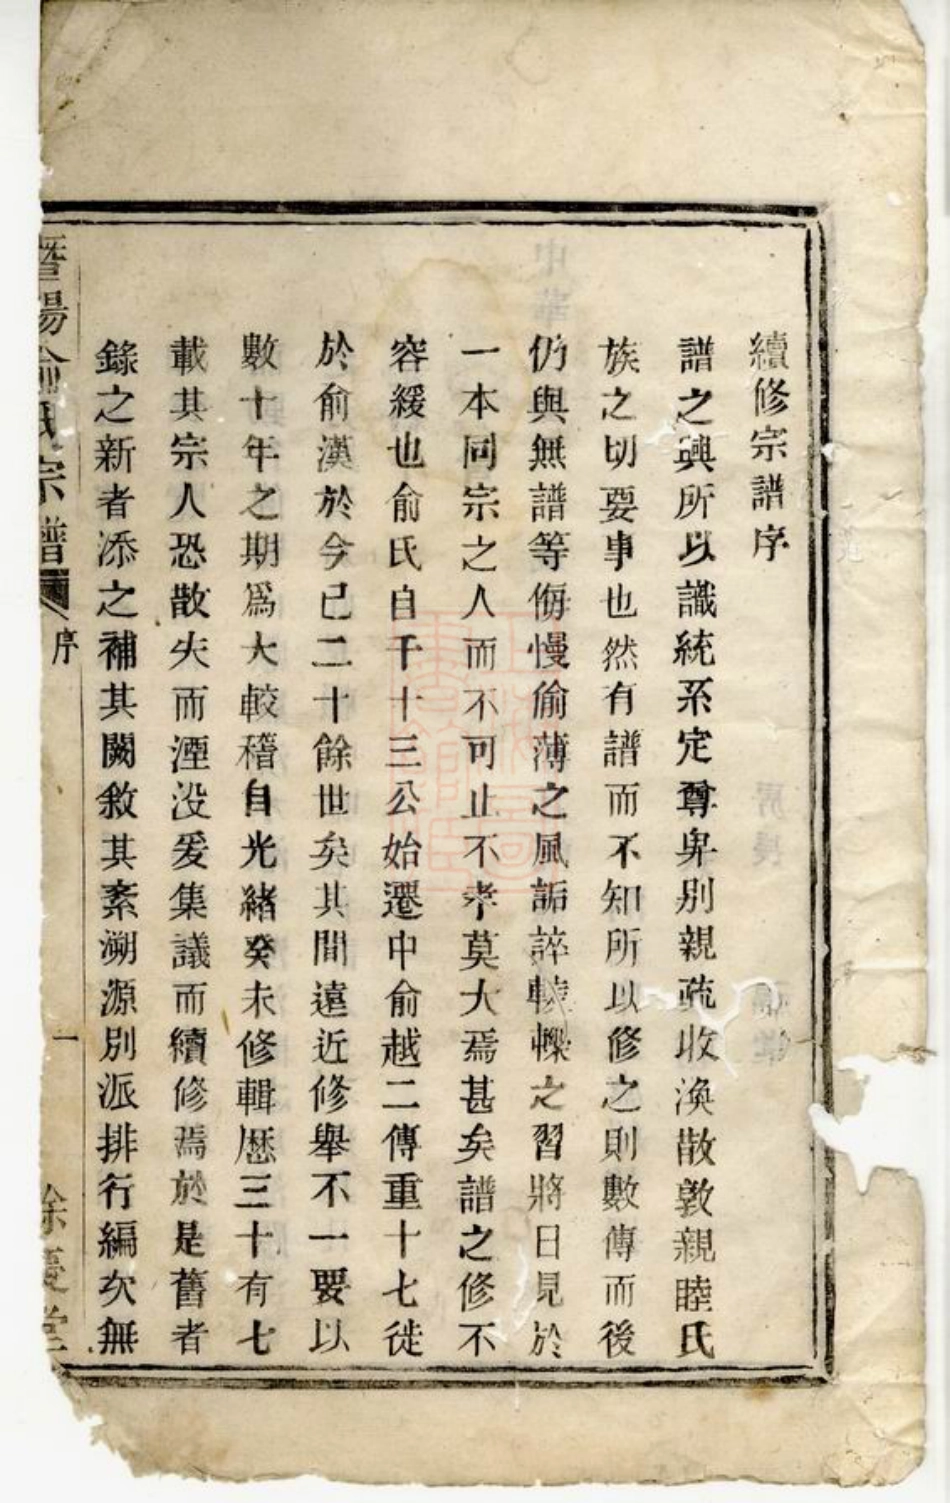 續修宗譜序
譜之興所以識統系定尊卑別親疏收渙散敦親睦氏
族之切要事也然有譜而不知所以修之則數傳而後
仍與無譜等侮慢偷薄之風詬誶轇轢之習將日見於
一本同宗之人而不可止不孝莫大焉甚矣譜之修不
容緩也俞氏自千十三公始遷中俞越二傳重十七徙
於俞漢於今已二十餘世矣其間遠近修舉不一要以
數十年之期爲大較稽自光緒癸未修輯歷三十有七
載其宗人恐散失而湮没爰集議而續修焉於是舊者
錄之新者添之補其闕敘其紊溯源別派排行編次無
暨陽俞氏宗譜
序
一
餘慶堂